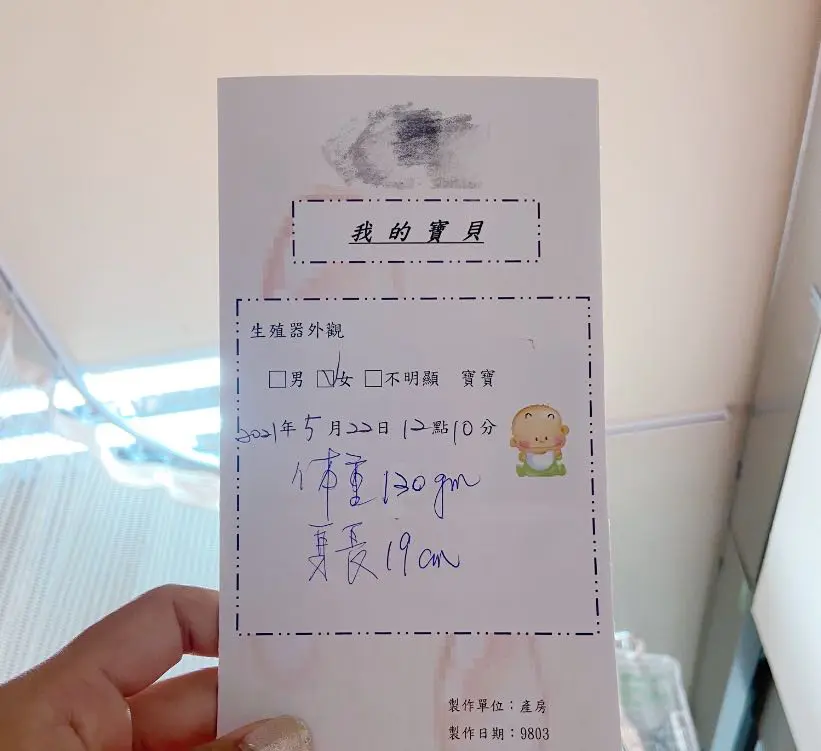 我的寶貝
生殖器外觀
□男 ☑女 □不明顯 寶寶
2021年5月22日12點10分
体重130gm
身長19cm
製作單位：產房
製作日期：9803